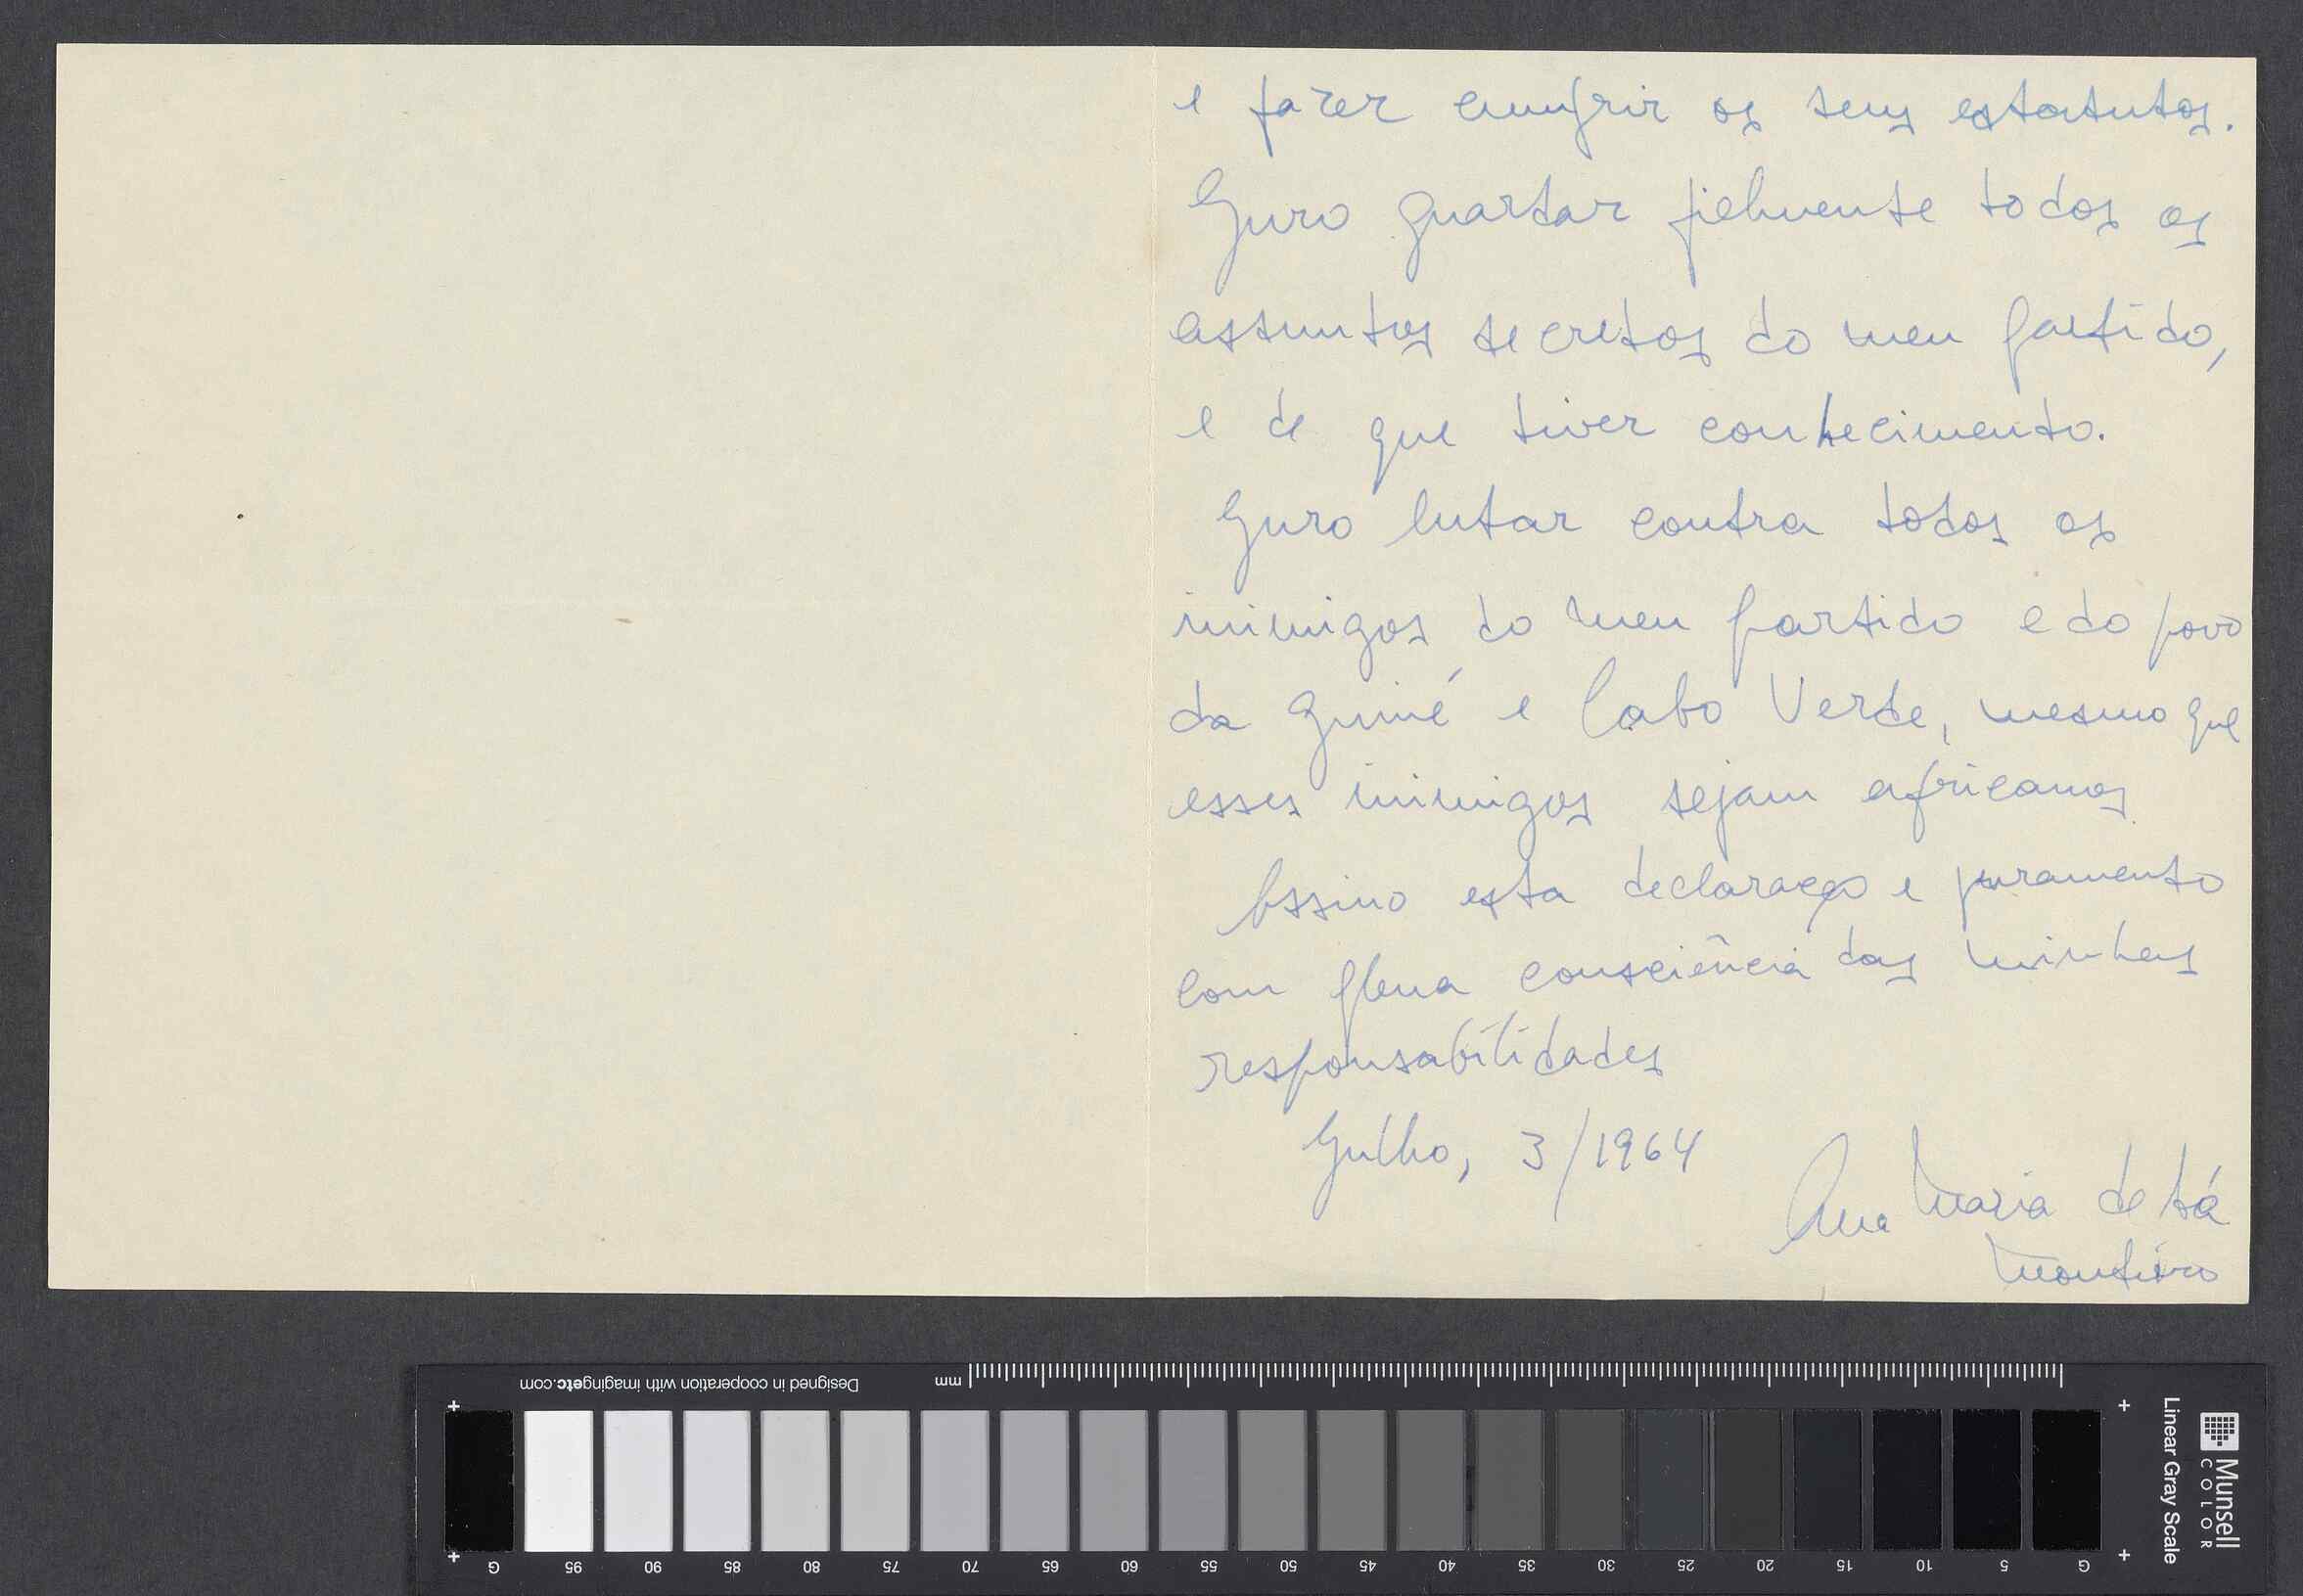 e fazer cumprir os seus estatutos.
Juro guardar fielmente todos os
assuntos secretos do meu partido,
e de que tiver conhecimento.
Juro lutar contra todos os
inimigos do meu partido e do povo
da Guiné e Cabo Verde, mesmo que
esses inimigos sejam africanos.
Assino esta declaração e juramento
com plena consciência das minhas
responsabilidades
Julho, 3/1964
Ana Maria de Sá
Monteiro
Designed in cooperation with imagingetc.com
mm
Munsell
COLOR
Linear Gray Scale
G 95 90 85 80 75 70 65 60 55 50 45 40 35 30 25 20 15 10 5 G